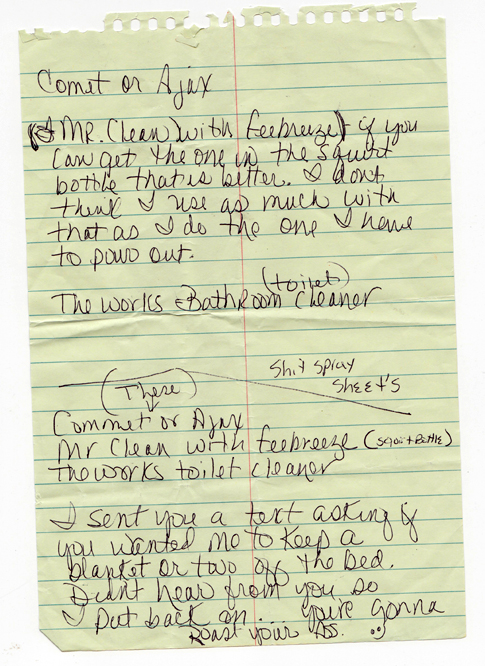 Comet or Ajax
(1 MR. Clean) with feebreeze) if you
can get the one in the squirt
bottle that is better. I don't
think I use as much with
that as I do the one I have
to pour out.
(toilet)
The works Bathroom cleaner
Shit spray
sheet's
(These)
Commet or Ajax
Mr Clean with feebreeze (squirt Bottle)
the works toilet cleaner
I sent you a text asking if
you wanted me to keep a
blanket or two off the bed.
Didnt hear from you so
I put back on... you're gonna
Roast your Ass. :)